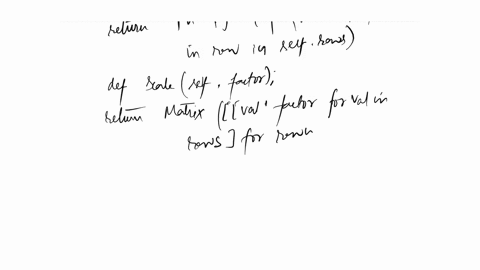 return
in row in self.rows)
def scale(self, factor);
return Matrix ([[val' factor for val in
rows] for rown